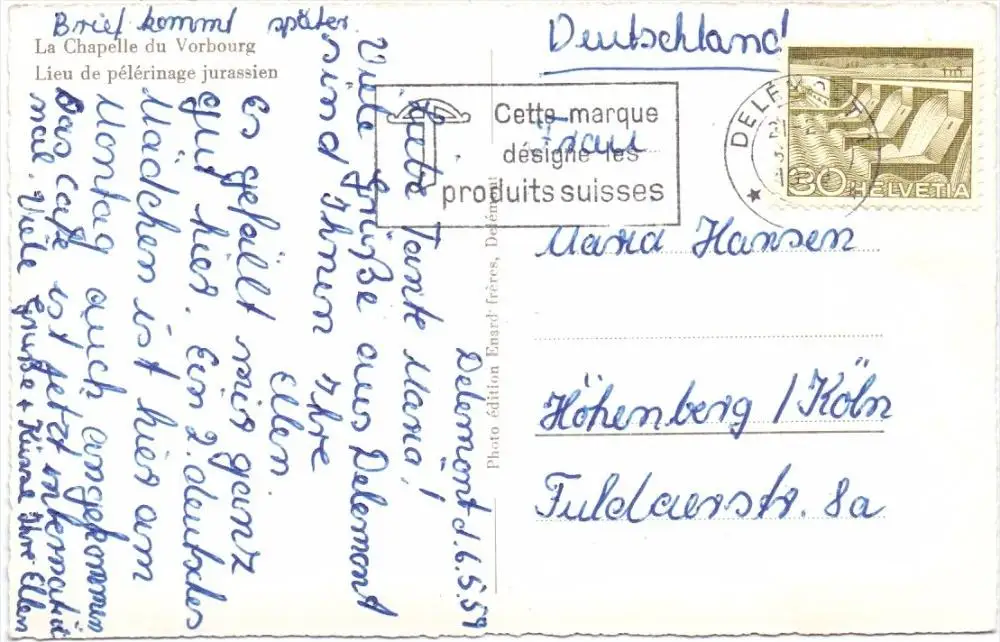 Brief kommt später.
La Chapelle du Vorbourg
Lieu de pélérinage jurassien
Delemont d. 6.5.59
Liebe Tante Maria!
Viele Grüße aus Delemont
sind Ihnen Ihre
Ellen.
Es gefällt mir ganz
gut hier. Ein 2. deutsches
Mädchen ist hier am
Montag auch angekommen
Das Café ist jetzt internatio
nal. Viele Grüße + Küsse Ihre Ellen
Photo édition Enard frères, Delémont
Cette marque
désigne les
produits suisses
DELÉMONT 1
30 HELVETIA
Deutschland
Frau
Maria Hansen
Höhenberg / Köln
Fuldaerstr. 8a